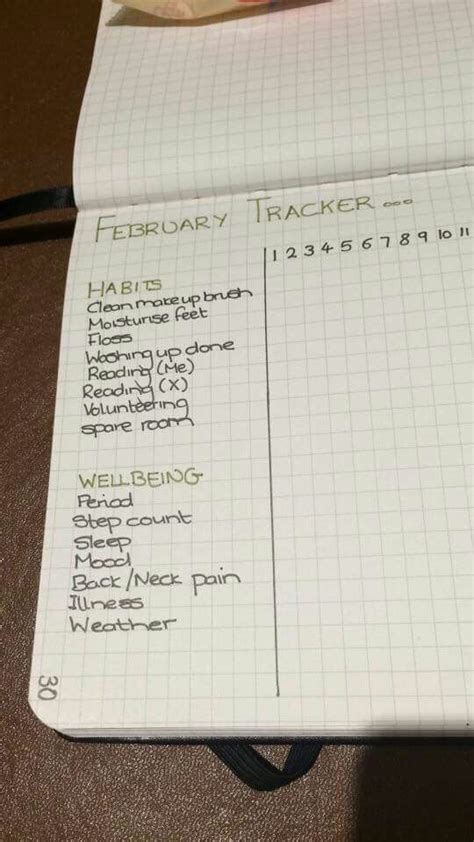 FEBRUARY TRACKER...
1 2 3 4 5 6 7 8 9 10 11
HABITS
Clean make up brush
Moisturise feet
Floss
Washing up done
Reading (Me)
Reading (X)
Volunteering
spare room
WELLBEING
Period
Step count
Sleep
Mood
Back/Neck pain
Illness
Weather
30